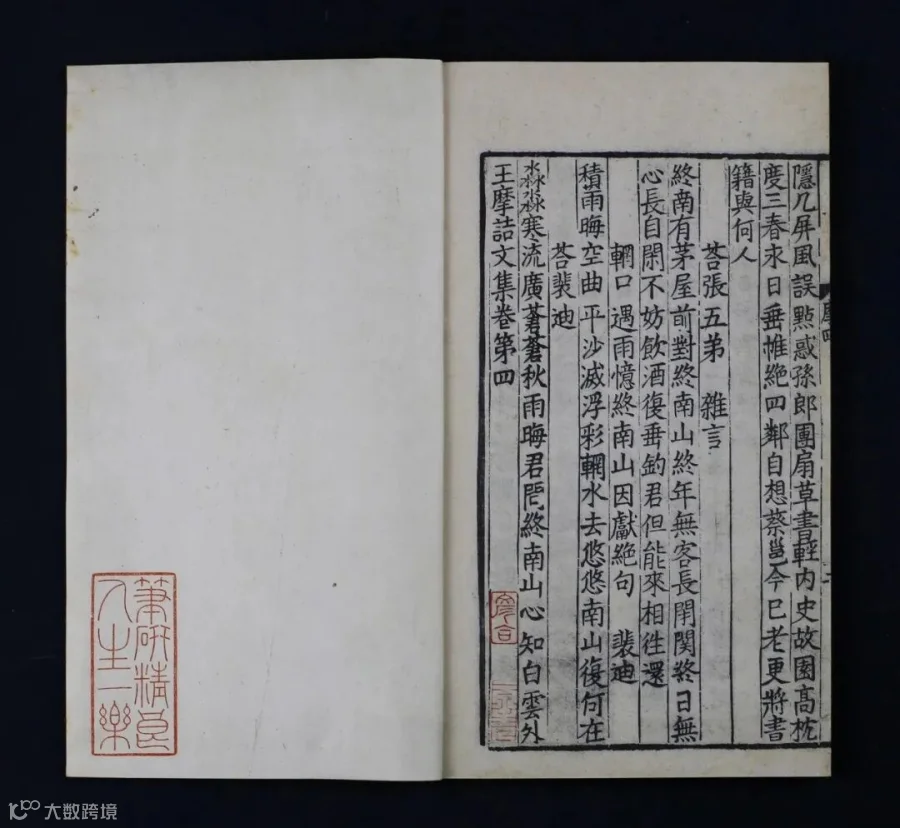 隱几屏風誤點惑孫郎團扇草書輕内史故園高枕
度三春永日垂帷絶四鄰自想蔡邕今已老更將書
籍與何人
荅張五弟　雜言
終南有茅屋前對終南山終年無客長閉關終日無
心長自閑不妨飲酒復垂釣君但能來相往還
輞口遇雨憶終南山因獻絶句　裴迪
積雨晦空曲平沙滅浮彩輞水去悠悠南山復何在
荅裴迪
淼淼寒流廣蒼蒼秋雨晦君問終南山心知白雲外
王摩詰文集卷第四
筆研精良
人生一樂
大数跨境